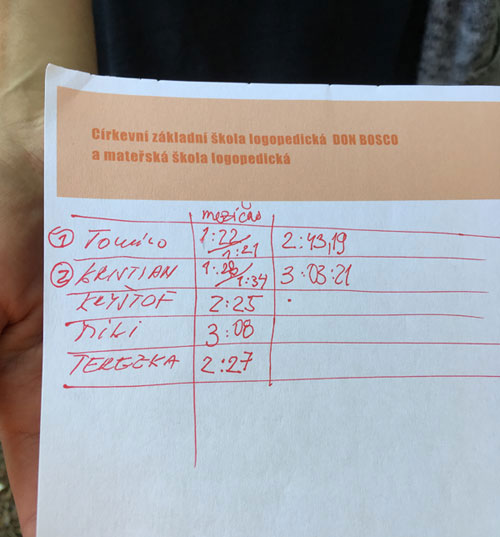 Církevní základní škola logopedická DON BOSCO
a mateřská škola logopedická
mezičas
1 Tomino 1:22 / 1:21 2:43,19
2 KRISTIAN 1:28 / 1:34 3:03:21
KRYŠTOF 2:25
MIKI 3:08
TEREZKA 2:27